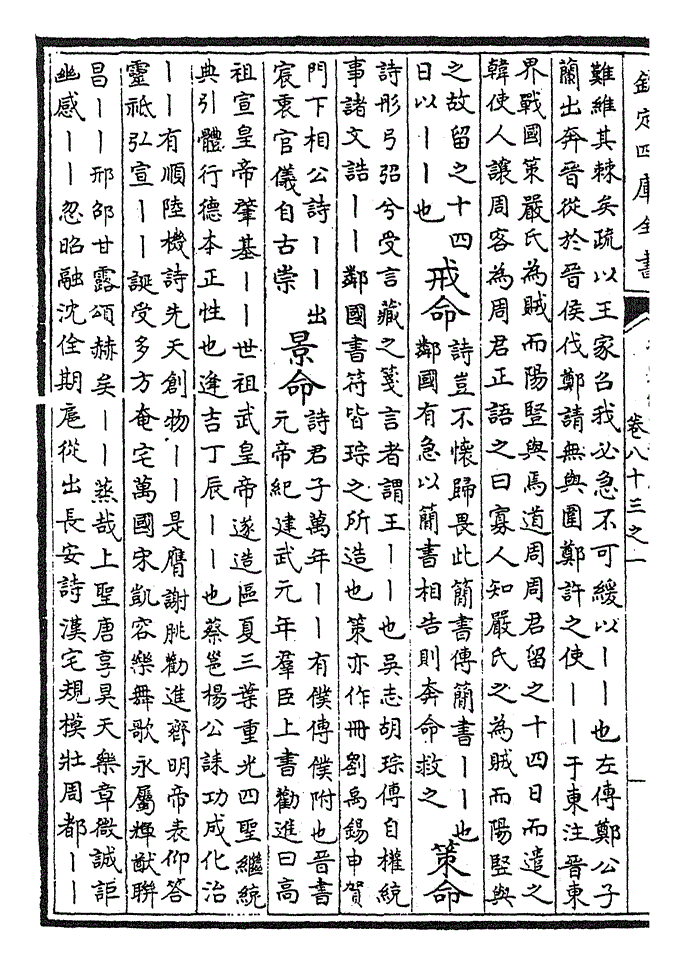 欽定四庫全書
卷八十三之一
難維其棘矣疏以王家召我必急不可緩以丨丨也左傳鄭公子
蘭出奔晉從於晉侯伐鄭請無與圍鄭許之使丨丨于東注晉東
界戰國策嚴氏為賊而陽豎與焉道周周君留之十四日而遣之
韓使人讓周客為周君正語之曰寡人知嚴氏之為賊而陽豎與
之故留之十四
日以丨丨也
戒命
詩豈不懷歸畏此簡書傳簡書丨丨也
鄰國有急以簡書相告則奔命救之
策命
詩彤弓弨兮受言藏之箋言者謂王丨丨也吳志胡琮傳自權統
事諸文誥丨丨鄰國書符皆琮之所造也 策亦作冊劉禹錫申賀
門下相公詩丨丨出
宸衷官儀自古崇
景命
詩君子萬年丨丨有僕傳僕附也晉書
元帝紀建武元年羣臣上書勸進曰高
祖宣皇帝肇基丨丨世祖武皇帝遂造區夏三葉重光四聖繼統
典引體行德本正性也逢吉丁辰丨丨也蔡邕楊公誄功成化治
丨丨有順陸機詩先天創物丨丨是膺謝朓勸進齊明帝表仰答
靈祇弘宣丨丨誕受多方奄宅萬國宋凱容樂舞歌永屬輝猷聯
昌丨丨邢邵甘露頌赫矣丨丨蒸哉上聖唐享昊天樂章微誠詎
幽感丨丨忽昭融沈佺期扈從出長安詩漢宅規模壯周都丨丨